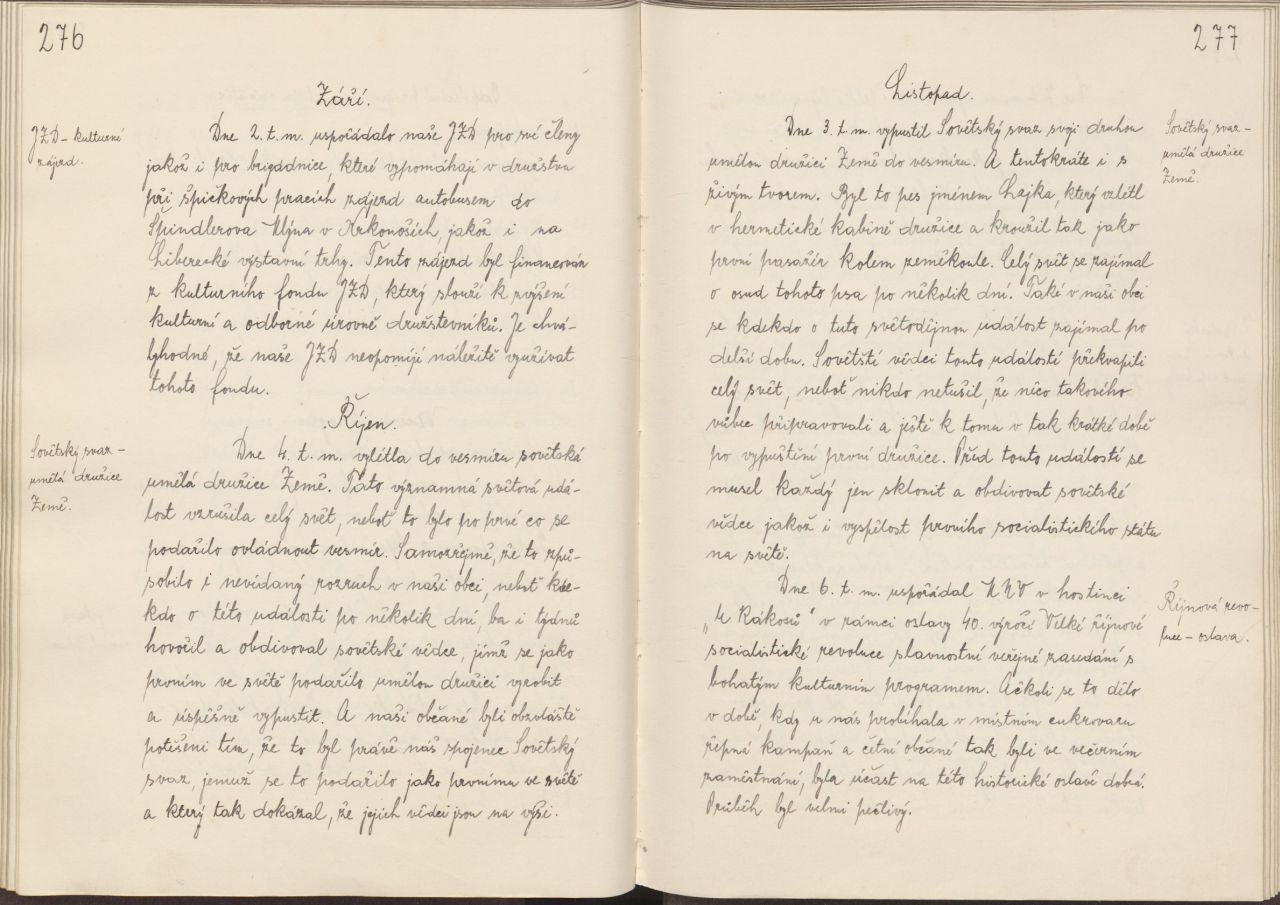 276
Září.
JZD - kulturní
zájezd.
Dne 2. t. m. uspořádalo naše JZD pro své členy
jakož i pro brigádnice, které vypomáhají v družstvu
při špičkových pracích zájezd autobusem do
Špindlerova Mlýna v Krkonoších, jakož i na
Liberecké výstavní trhy. Tento zájezd byl financován
z kulturního fondu JZD, který slouží k zvýšení
kulturní a odborné úrovně družstevníků. Je chvá-
lyhodné, že naše JZD neopomíjí náležitě využívat
tohoto fondu.
Říjen.
Sovětský svaz -
umělá družice
Země.
Dne 4. t. m. vylétla do vesmíru sovětská
umělá družice Země. Tato významná světová udá-
lost vzrušila celý svět, neboť to bylo po prvé co se
podařilo ovládnout vesmír. Samozřejmě, že to způ-
sobilo i nevídaný rozruch v naší obci, neboť kde-
kdo o této události po několik dní, ba i týdnů
hovořil a obdivoval sovětské vědce, jímž se jako
prvním ve světě podařilo umělou družici vyrobit
a úspěšně vypustit. A naši občané byli obzvláště
potěšeni tím, že to byl právě náš spojenec Sovětský
svaz, jemuž se to podařilo jako prvnímu ve světě
a který tak dokázal, že jejich vědci jsou na výši.
277
Listopad.
Sovětský svaz -
umělá družice
Země.
Dne 3. t. m. vypustil Sovětský svaz svoji druhou
umělou družici Země do vesmíru. A tentokráte i s
živým tvorem. Byl to pes jménem Lajka, který vzlétl
v hermetické kabině družice a kroužil tak jako
první pasažér kolem zeměkoule. Celý svět se zajímal
o osud tohoto psa po několik dní. Také v naší obci
se kdekdo o tuto světodějnou událost zajímal po
delší dobu. Sovětští vědci touto událostí překvapili
celý svět, neboť nikdo netušil, že něco takového
vůbec připravovali a ještě k tomu v tak krátké době
po vypuštění první družice. Před touto událostí se
musel každý jen sklonit a obdivovat sovětské
vědce jakož i vyspělost prvního socialistického státu
na světě.
Dne 6. t. m. uspořádal MNV v hostinci
„U Rákosů" v rámci oslavy 40. výročí Velké říjnové
socialistické revoluce slavnostní veřejné zasedání s
bohatým kulturním programem. Ačkoli se to dělo
v době, kdy u nás probíhala v místním cukrovaru
řepná kampaň a četní občané tak byli ve večerním
zaměstnání, byla účast na této historické oslavě dobrá.
Průběh byl velmi pečlivý.
Říjnová revo-
luce - oslava.